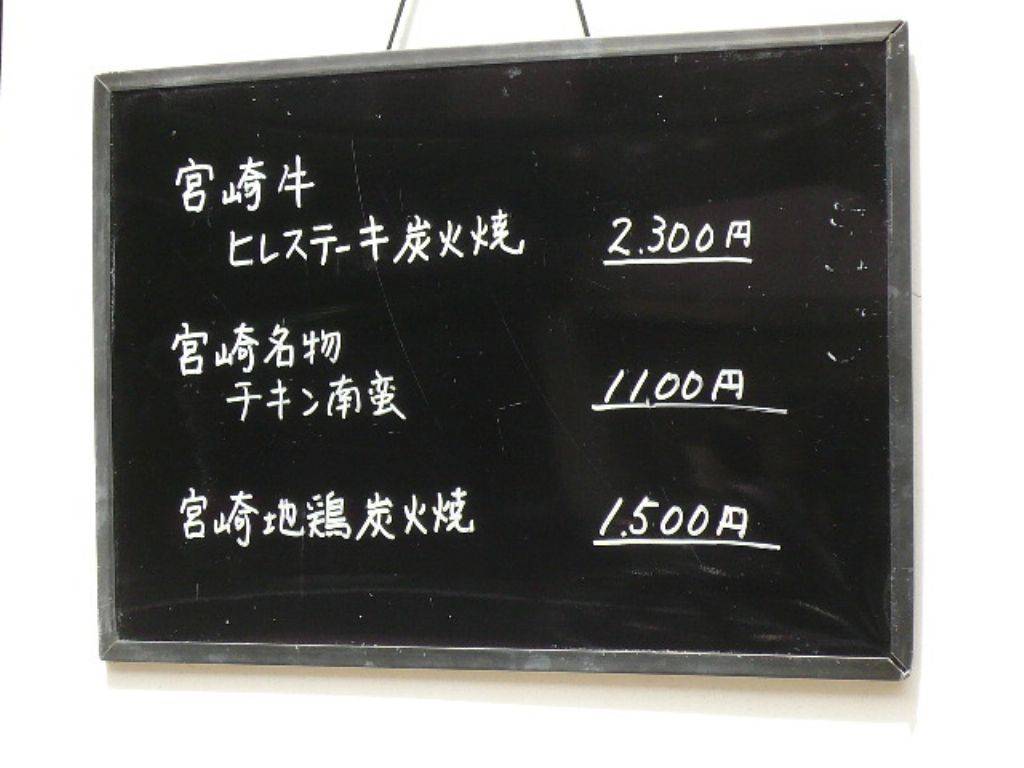 宮崎牛
ヒレステーキ炭火焼 2.300円
宮崎名物
チキン南蛮 1.100円
宮崎地鶏炭火焼 1.500円